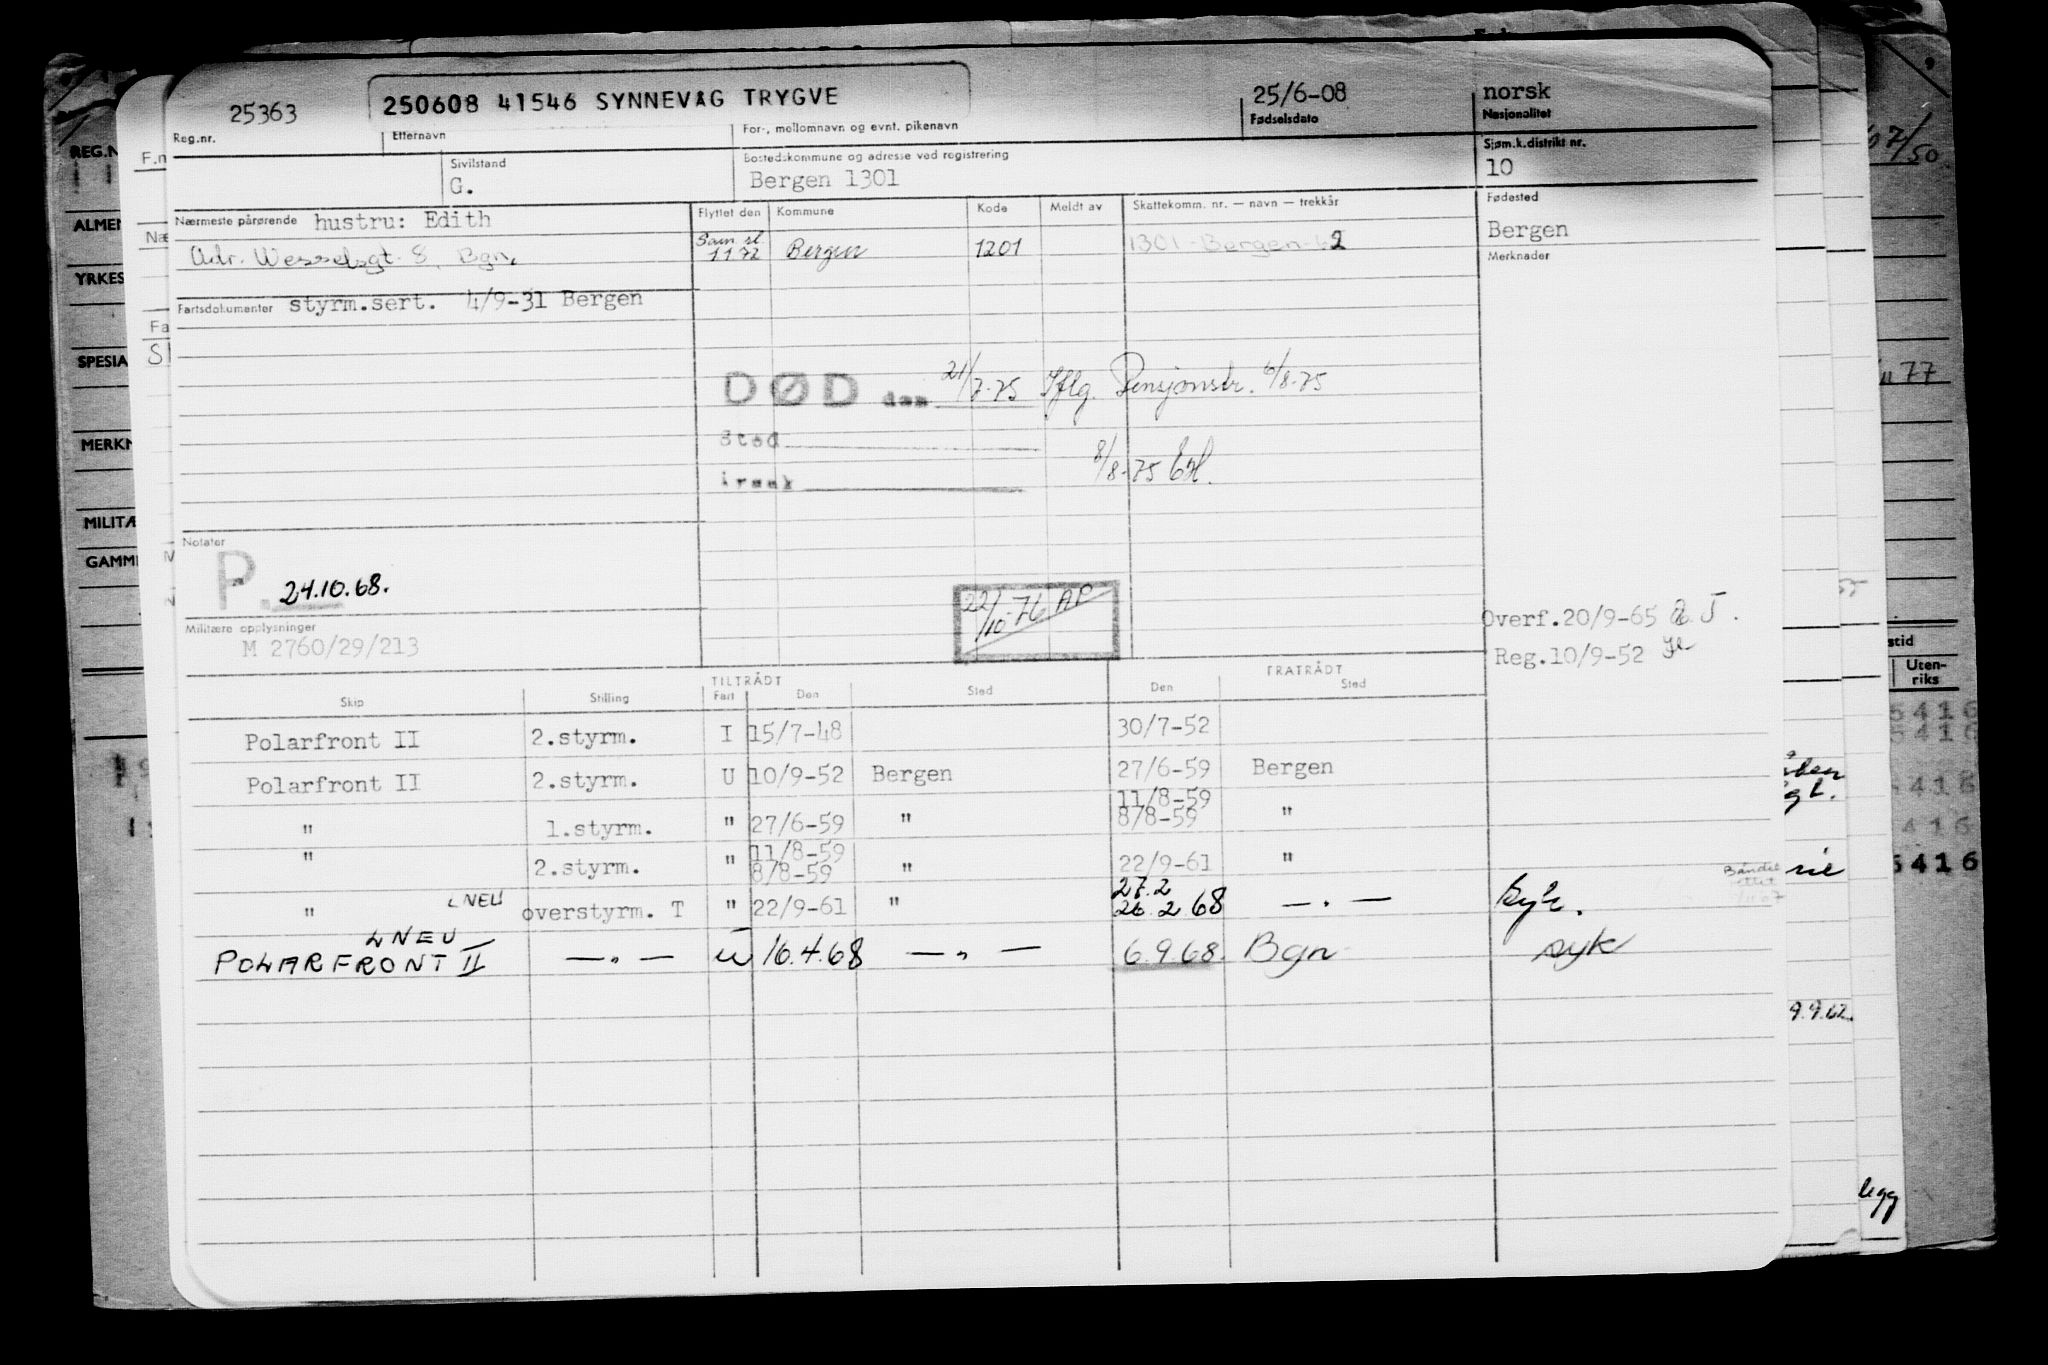 25363 250608 41546 SYNNEVÅG TRYGVE 25/6-08 norsk
Reg.nr. Etternavn For-, mellomnavn og evnt. pikenavn Fødselsdato Nasjonalitet
Sivilstand Bostedskommune og adresse ved registrering Sjøm.k.distrikt nr.
G. Bergen 1301 10
Nærmeste pårørende hustru: Edith Flyttet den Kommune Kode Meldt av Skattekomm. nr. — navn — trekkår Fødested
Bergen
Adr. Wesselsgt. 8, Bgn. 1 1 72 Bergen 1201 1301 Bergen 2
Merknader
Fartsdokumenter styrm.sert. 4/9-31 Bergen
DØD den 21/7-75 Iflg. Pensjonstr. 6/8-75
Sted
8/8-75
Årsak
Notater
P. 24.10.68.
22/10-76 AP
Overf.20/9-65
Militære opplysninger
M 2760/29/213
Reg.10/9-52
TILTRÅDT FRATRÅDT
Skip Stilling Fart Den Sted Den Sted
Polarfront II 2.styrm. I 15/7-48 30/7-52
Polarfront II 2.styrm. U 10/9-52 Bergen 27/6-59 Bergen
11/8-59
" 1.styrm. " 27/6-59 " 8/8-59 "
11/8-59
" 2.styrm. " 8/8-59 " 22/9-61 "
27.2
" LNEU overstyrm. T " 22/9-61 " 26.2 68 — " — syk.
LNEU
POLARFRONT II — " — u 16.4.68 — " — 6.9.68. Bgn syk
REG.N
F.n
ALMEN
Næ
YRKES
Fa
SPESIA
MERKN
MILITÆ
GAMM
7/50
77
stid
Uten-
riks
5416
5416
5416
416
5416
9.9.62.
legg